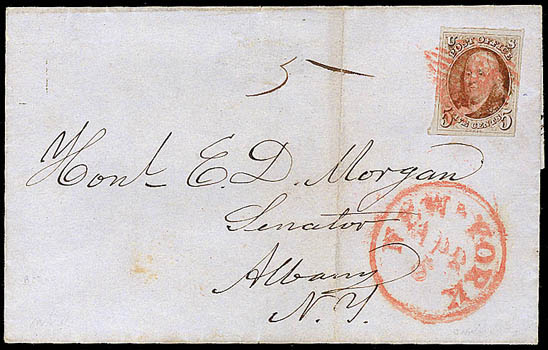 U S
POST OFFICE
5 FIVE CENTS 5
5
Honl E. D. Morgan
Senator
Albany
N.Y.
NEW-YORK
APR